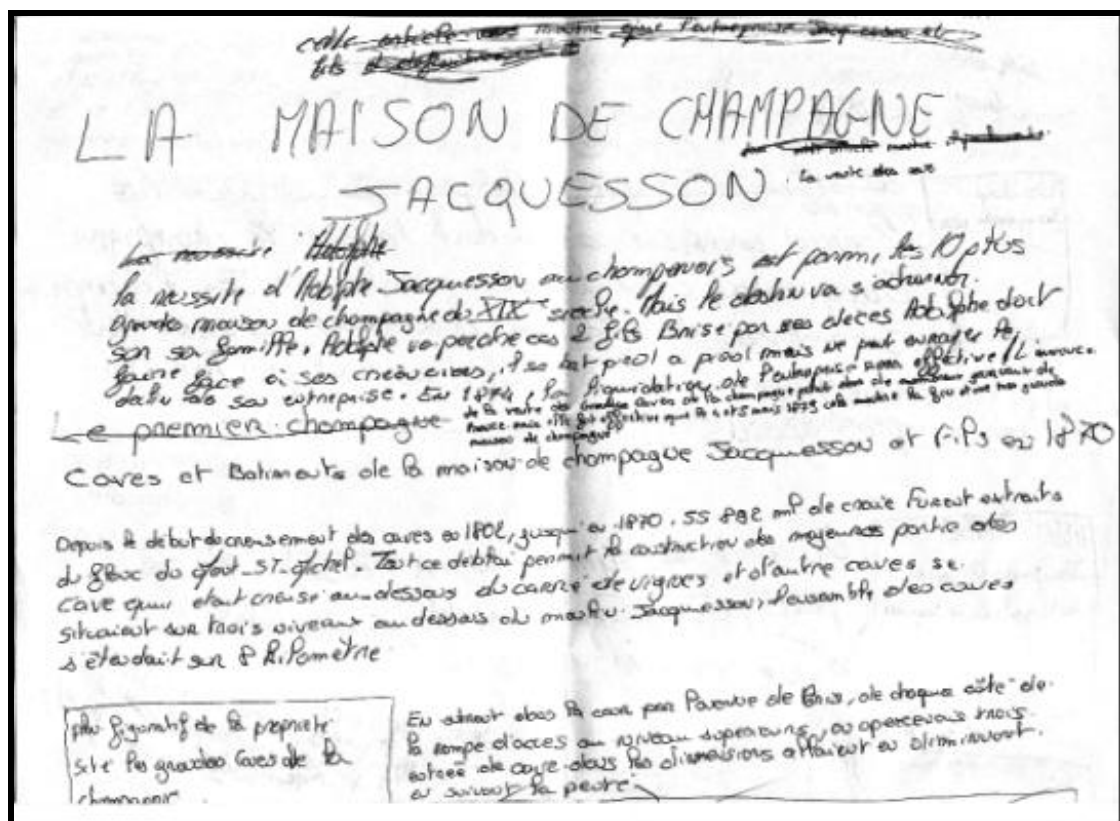 cette article nous montre que l'entreprise Jacquesson et
fils
LA MAISON DE CHAMPAGNE
JACQUESSON
La vente des
La reussite Adolphe
la reussite d'Adolphe Jacquesson au champenois est parmi les 10 plus
grandes maison de champagne du XIXe siecle. Mais le destin va s'acharner
son sa famille. Adolphe va perdre ces 2 fils Brise par ses deces Adolphe doit
faire face à ses creanciers, il se bat pied a pied mais ne peut
de son entreprise. En 1874, la liquidation de l'entreprise sera effective / L'annonce
de la vente des caves de la champagne dans de journaux de
France mais elle fut effective que le 4 et 5 mars 1879 cela montre la d'une tres grande
maison de champagne
Le premier champagne
Caves et Batiments de la maison de champagne Jacquesson et Fils en 1870
Depuis le debut du creusement des caves en 1802, jusqu'en 1870, 55 892 m3 de craie furent extraits
du flanc du Mont-St-Michel. Tout ce deblai permit la construction des majeures partie des
cave qui etait creuse au dessous du carré de vignes et d'autre caves se
situaient sur trois niveaux au dessous du Jacquesson, l'ensemble des caves
s'étendait sur 8 kilomètre
plan figuratif de la propriete
site les grandes Caves de la
champagne
En entrant dans la cour par l'avenue de Paris, de chaque côte de
la rampe d'acces au niveau superieure, on apercevais trois
entrée de cave dans les dimensions allaient en diminuant
en suivant la pente